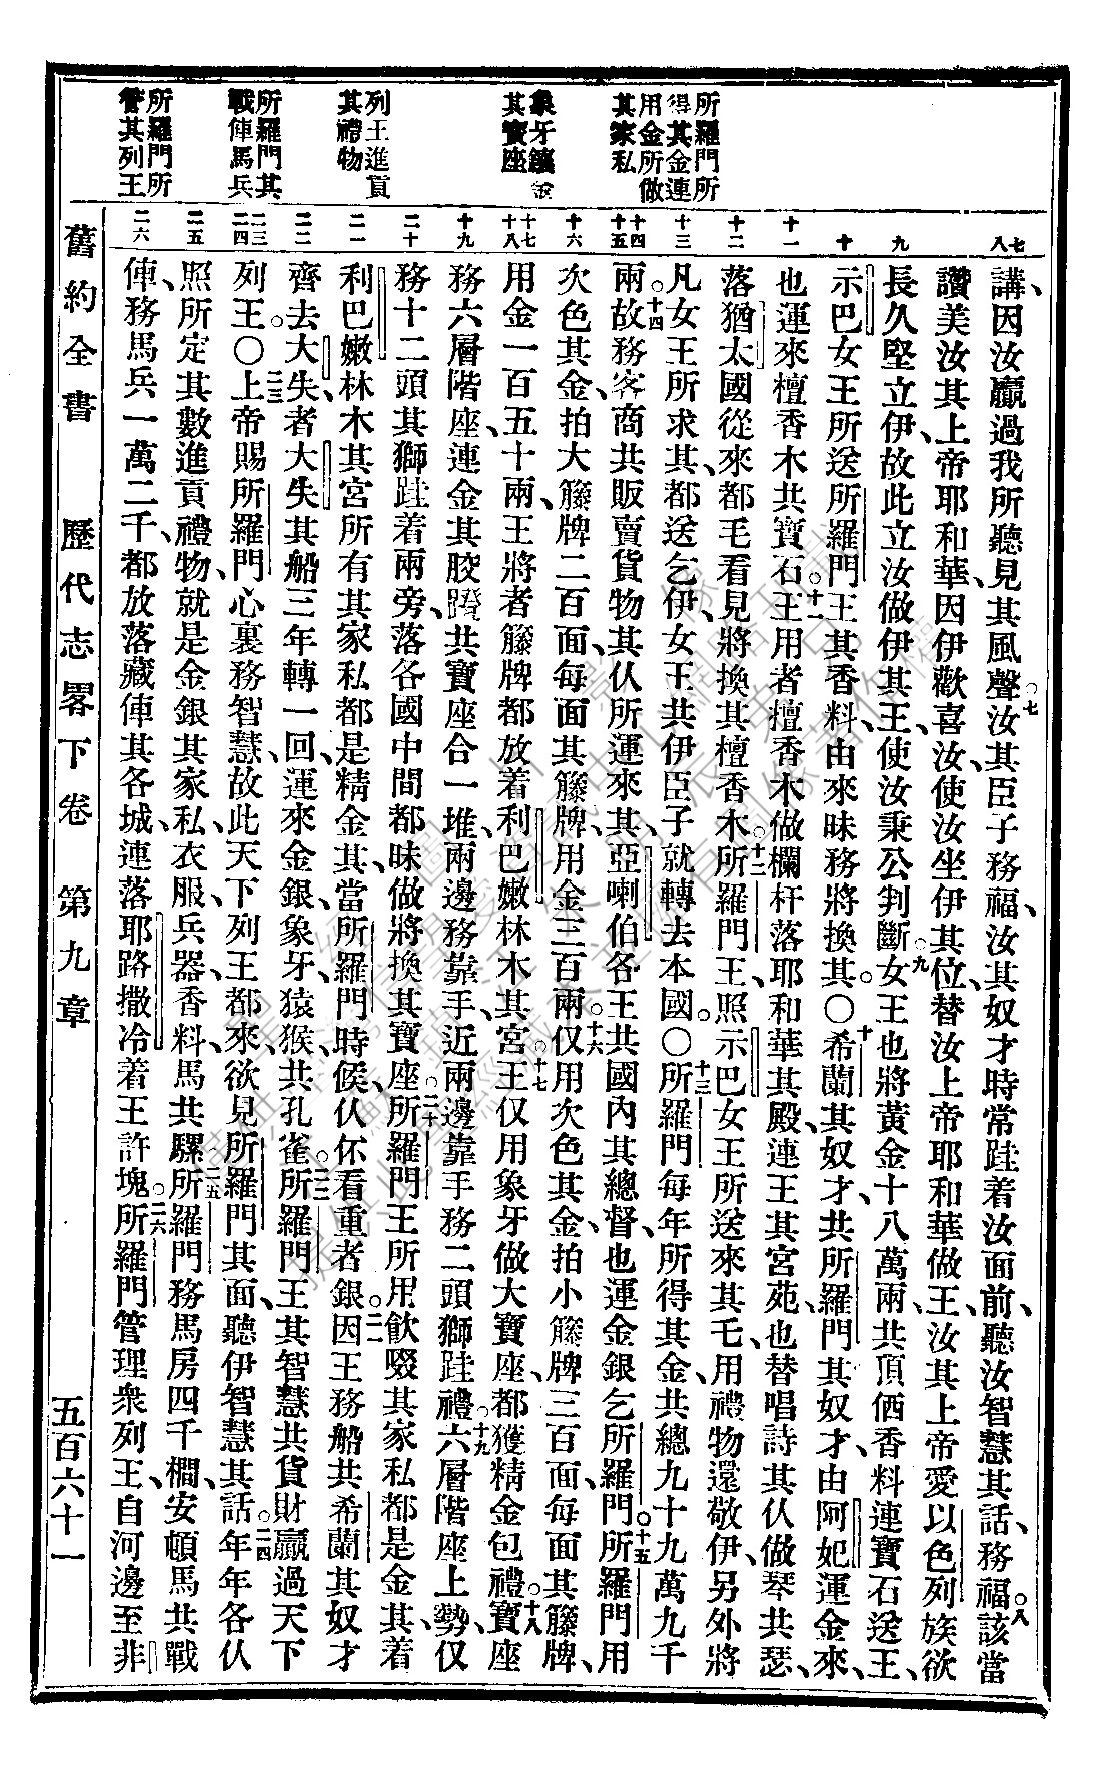 所羅門所
得其金連
用金所做
其家私
象牙鑲
其寶座
列王進貢
其禮物
所羅門其
戰俥馬兵
所羅門所
管其列王
七
八
九
十
十一
十二
十三
十四
十五
十六
十七
十八
十九
二十
二一
二二
二三
二四
二五
二六
講、因汝贏過我所聽見其風聲、○七汝其臣子務福、汝其奴才時常跬着汝面前、聽汝智慧其話、務福。○八該當
讚美汝其上帝耶和華、因伊歡喜汝、使汝坐伊其位、替汝上帝耶和華做王、汝其上帝愛以色列族、欲
長久堅立伊、故此立汝做伊其王、使汝秉公判斷○九女王也將黃金十八萬兩、共頂俹香料、連寶石送王、
示巴女王所送所羅門王其香料、由來昧務將換其。○十希蘭其奴才、共所羅門其奴才、由阿妃運金來、
也運來檀香木共寶石。○十一王用者檀香木、做欄杆落耶和華其殿、連王其宮苑、也替唱詩其仈做琴共瑟、
落猶太國從來都毛看見將換其檀香木。○十二所羅門王、照示巴女王所送來其毛、用禮物還敬伊、另外將
凡女王所求其、都送乞伊、女王共伊臣子、就轉去本國。○十三所羅門每年所得其金、共總九十九萬九千
兩。○十四故務客商共販賣貨物其仈所運來其、亞喇伯各王共國內其總督、也運金銀乞所羅門。○十五所羅門用
次色其金、拍大籐牌二百面、每面其籐牌、用金三百兩。○十六仅用次色其金、拍小籐牌三百面、每面其籐牌、
用金一百五十兩、王將者籐牌都放着利巴嫩林木其宮○十七王仅用象牙做大寶座、都獲精金包禮、○十八寶座
務六層階座、連金其骹蹬、共寶座合一堆、兩邊務靠手、近兩邊靠手、務二頭獅跬禮、○十九六層階座上勢、仅
務十二頭其獅跬着兩旁、落各國中間都昧做將換其寶座、○二十所羅門王所用飲啜其家私、都是金其、着
利巴嫩林木其宮所有其家私、都是精金其、當所羅門時候、仈伓看重者銀。○二一因王務船共希蘭其奴才
齊去大失、者大失其船三年轉一回、運來金銀、象牙、猿猴、共孔雀。○二二所羅門王其智慧共貨財贏過天下
列王。○二三上帝賜所羅門心裏務智慧、故此天下列王都來、欲見所羅門其面、聽伊智慧其話。○二四年年各仈
照所定其數進貢禮物、就是金銀其家私、衣服、兵器、香料、馬共騾。○二五所羅門務馬房四千櫊、安頓馬共戰
俥、務馬兵一萬二千、都放落藏俥其各城、連落耶路撒冷着王許塊。○二六所羅門管理衆列王、自河邊至非
舊約全書　歷代志畧下卷　第九章　五百六十一